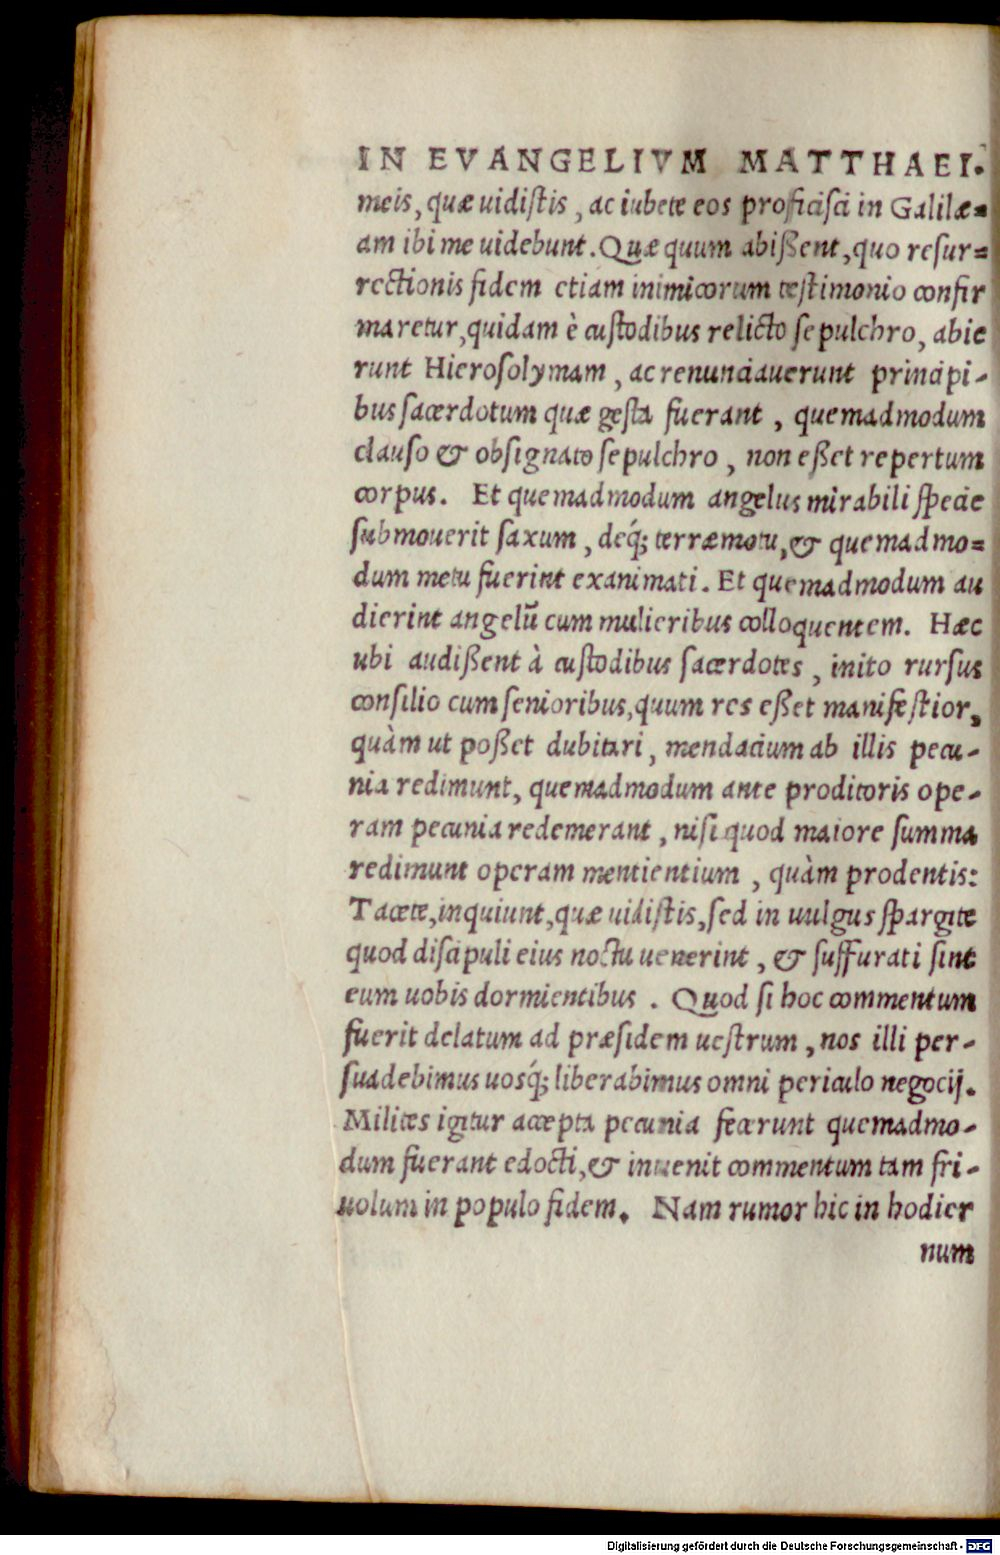 IN EVANGELIVM MATTHAEI.
meis, quæ uidiſtis, ac iubete eos proficiſci in Galilæ=
am ibi me uidebunt. Quæ quum abißent, quo reſur=
rectionis fidem etiam inimicorum teſtimonio confir
maretur, quidam è cuſtodibus relicto ſepulchro, abie
runt Hieroſolymam, ac renunciauerunt principi-
bus ſacerdotum quæ geſta fuerant, quemadmodum
clauſo & obſignato ſepulchro, non eßet repertum
corpus. Et quemadmodum angelus mirabili ſpecie
ſubmouerit ſaxum, deq́; terræmotu, & quemadmo=
dum metu fuerint exanimati. Et quemadmodum au
dierint angelũ cum mulieribus colloquentem. Hæc
ubi audißent à cuſtodibus ſacerdotes, inito rurſus
conſilio cum ſenioribus, quum res eßet manifeſtior,
quàm ut poßet dubitari, mendacium ab illis pecu-
nia redimunt, quemadmodum ante proditoris ope-
ram pecunia redemerant, niſi quod maiore ſumma
redimunt operam mentientium, quàm prodentis:
Tacete, inquiunt, quæ uidiſtis, ſed in uulgus ſpargite
quod diſcipuli eius noctu uenerint, & ſuffurati ſint
eum uobis dormientibus. Quod ſi hoc commentum
fuerit delatum ad præſidem ueſtrum, nos illi per-
ſuadebimus uosq́; liberabimus omni periculo negocij.
Milites igitur accepta pecunia fecerunt quemadmo-
dum fuerant edocti, & inuenit commentum tam fri-
uolum in populo fidem. Nam rumor hic in hodier
num
Digitalisierung gefördert durch die Deutsche Forschungsgemeinschaft - DFG